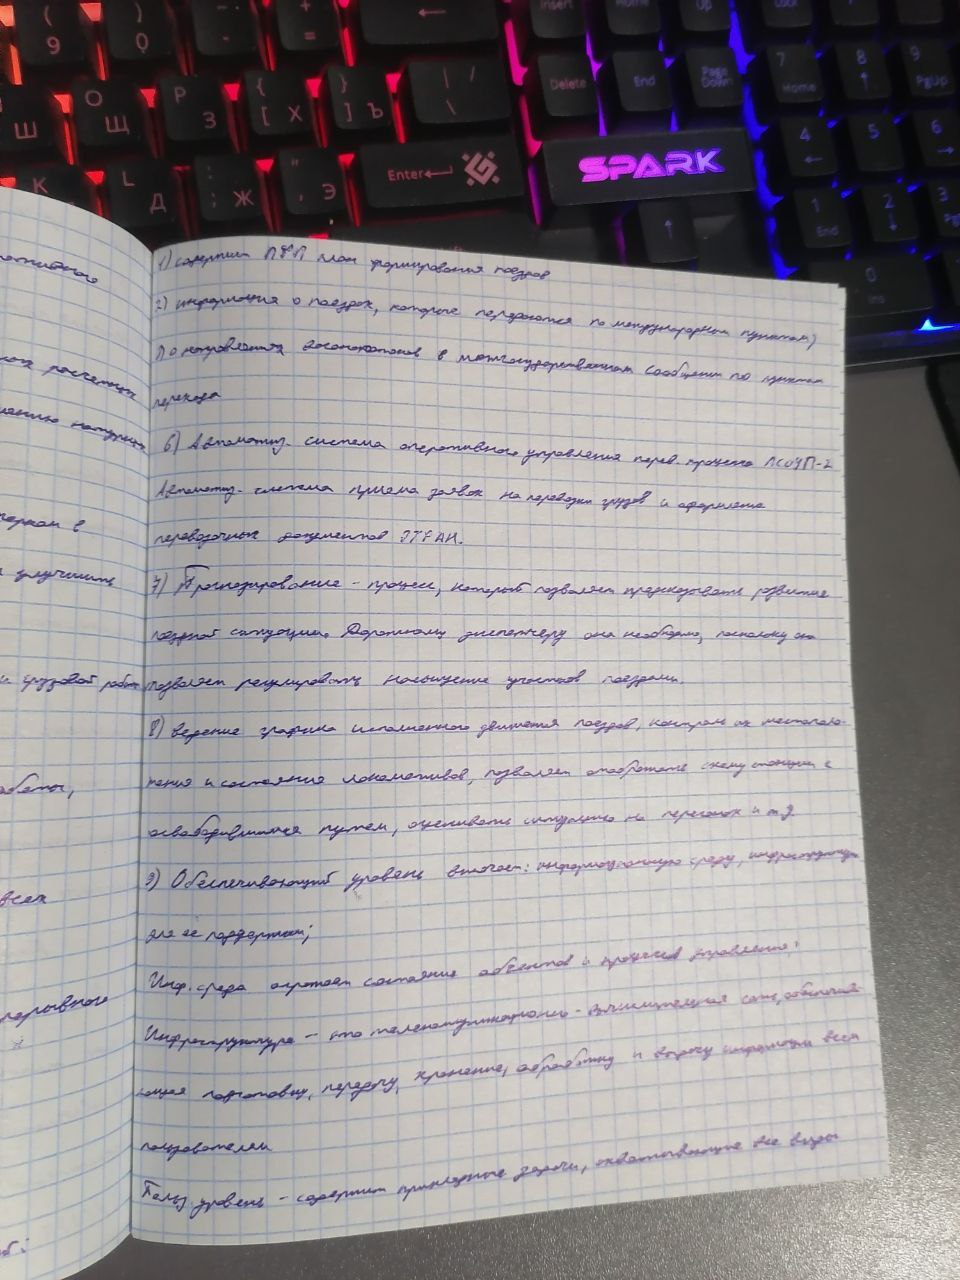 ( 9
) 0
- -
+ =
←
Insert
Home
Up
Lock
Ш
О Щ
Р З
{ [ Х
} ] Ъ
| / \
Delete
End
Page Down
7 Home
8 ↑
9 PgUp
К
L Д
: ; Ж
" ' Э
Enter
SPARK
4 ←
5
6 →
↑
1 End
2 ↓
3
0 Ins
1) содержит ПФП план формирования поездов
2) информация о поездах, которые передаются по международным пунктам)
по направлениях вагонопотоков в межгосударственном сообщении по пунктам
перехода
6) Автоматиз. система оперативного управления перев. процесса АСОУП-2
Автоматиз. система приема заявок на перевозки грузов и оформления
перевозочных документов ЭТРАН.
7) Прогнозирование - процесс, который позволяет предсказывать развитие
поездной ситуации. Дорожному диспетчеру она необходимо, поскольку он
позволяет регулировать насыщение участков поездами.
8) ведение графика исполненного движения поездов, контроль их местополо-
жения и состояния локомотивов, позволяет отображать схему станции с
освободившимся путем, оценивать ситуацию на перегонах и т д.
9) Обеспечивающий уровень включает: информационную среду, инфраструктуру
для ее поддержки;
Инф. среда отражает состояние объектов и процессов управления;
Инфраструктура - это телекоммуникационно - вычислительная сеть, обеспечива-
ющая подготовку, передачу, хранение, обработку и выдачу информации всем
пользователям
Польз уровень - содержит прикладные задачи, охватывающие все виды
расчетных
в
улучшить
и грузовой работ
работы,
всех